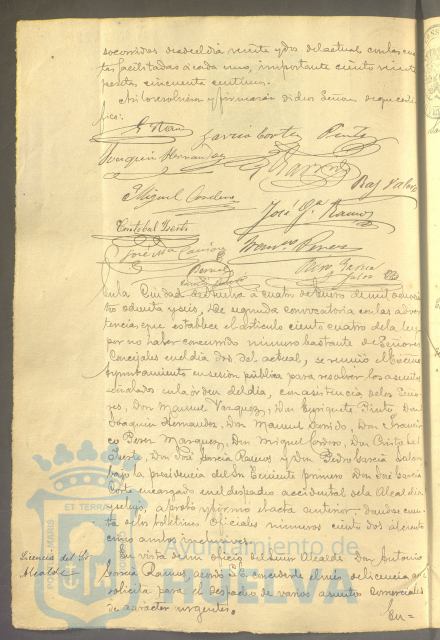 socorridas desde el dia veinte y dos del actual con las cuo-
tas facilitadas a cada uno, importante ciento veinte
pesetas cincuenta centimos.
Asi lo resolvieron y firmaron dichos Señores de que certi-
fico:
García Cortés Pinto
Joaquin Hernandez
Miguel Cordero
José Gª Ramos
Cristobal
José Mª
En la Ciudad de Huelva a cuatro de Enero de mil ochocien-
tos ochenta y seis, de segunda convocatoria con las adver-
tencias que establece el articulo ciento cuatro de la ley
por no haber concurrido número bastante de Señores
Concejales en el dia dos del actual, se reunió el Excmo
Ayuntamiento en sesion pública para resolver los asuntos
señalados en la órden del dia, con asistencia de los Seño-
res, Don Manuel Vazquez, Don Enrique Pinto, Don
Joaquin Hernandez, Don Manuel Garrido, Don Francis-
co Perez Marquez, Don Miguel Cordero, Don Cristobal
Don José Garcia Ramos y Don Pedro Garcia
bajo la presidencia del Sr. Teniente primero Don José Garcia
Cortés encargado en el despacho accidental de la Alcaldia
aprobó el acta anterior dandose cuen-
ta de los boletines oficiales números ciento dos al ciento
cinco ambos inclusives.
Licencia del Sr.
Alcalde
En vista de un oficio del Señor Alcalde Don Antonio
Garcia Ramos, acordó concederle el mes de licencia que
solicita para el despacho de varios asuntos comerciales
de caracter urgente.
En=
PORTUS MARIS
ET TERRAE
Ayuntamiento de
HUELVA